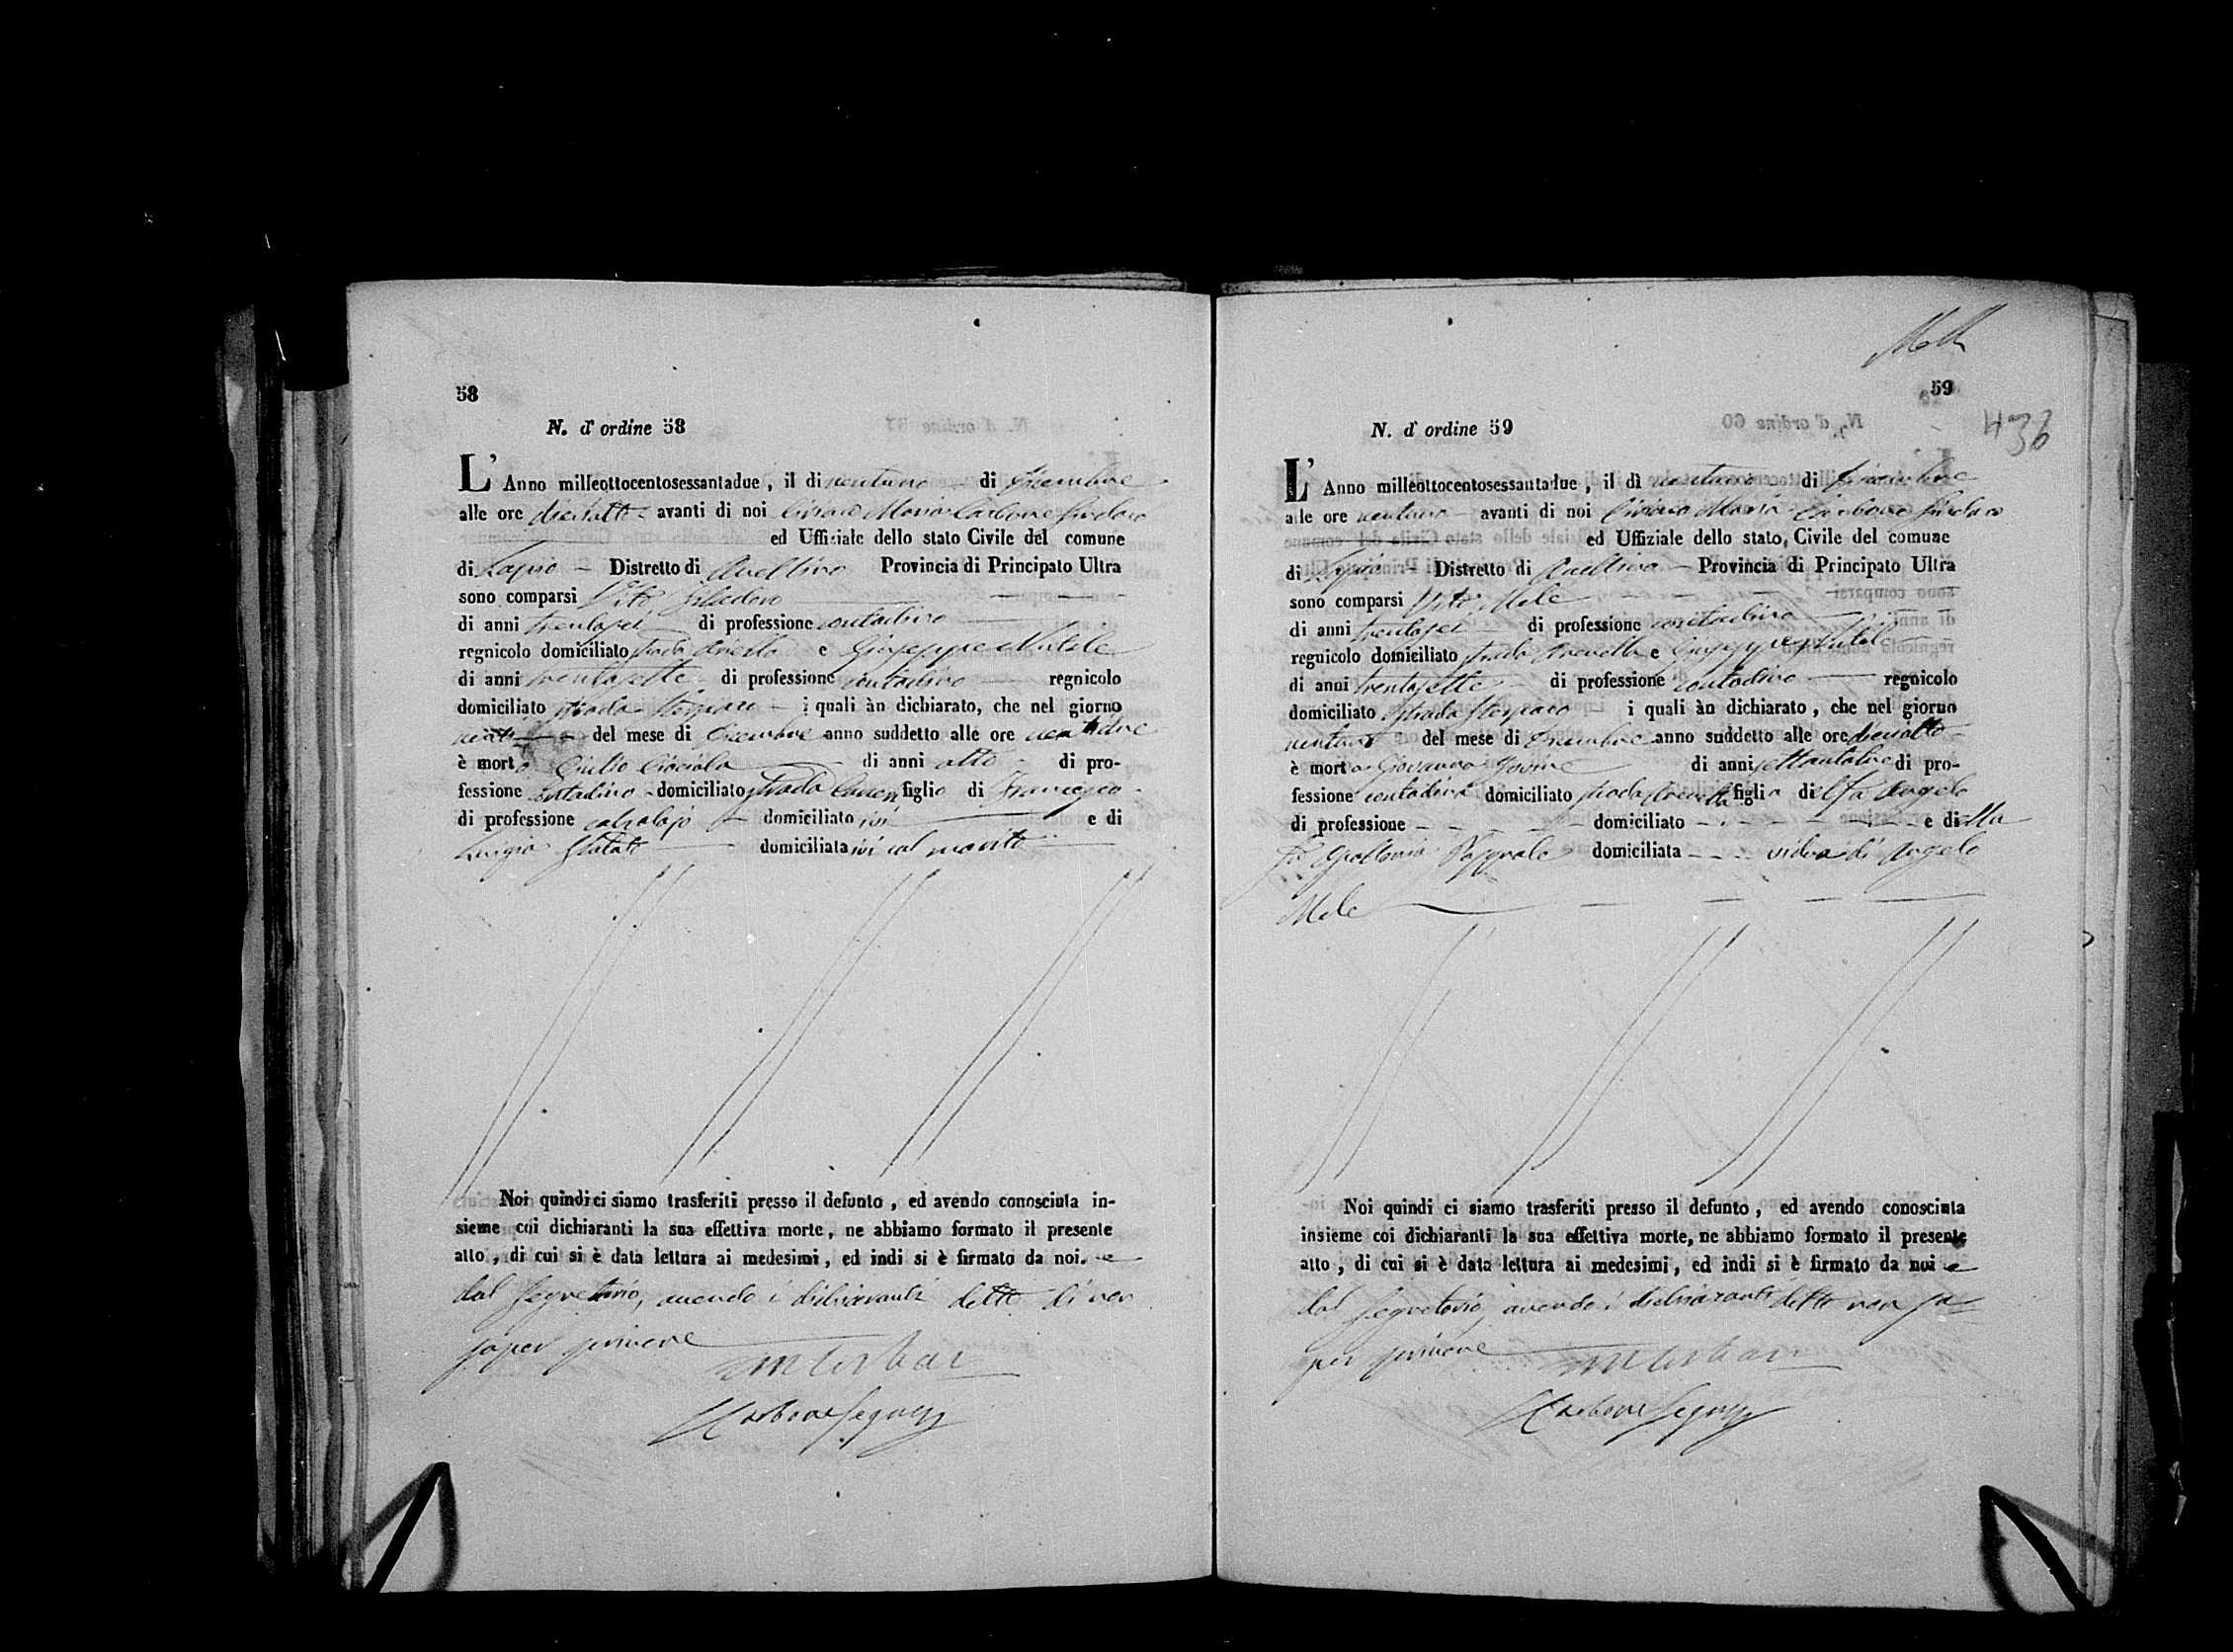 58
N. d' ordine 58
L' Anno milleottocentosessantadue, il di ventuno di Dicembre
alle ore diciotto avanti di noi Maria Carbone Sindaco
ed Uffiziale dello stato Civile del comune
di Lapio Distretto di Avellino Provincia di Principato Ultra
sono comparsi Vito
di anni trentasei di professione contadino
regnicolo domiciliato strada e Giuseppe Natale
di anni trentasette di professione contadino regnicolo
domiciliato strada i quali àn dichiarato, che nel giorno
del mese di Dicembre anno suddetto alle ore ventidue
è morto Giulio Ciociola di anni otto di pro-
fessione contadino domiciliato strada figlio di Francesco
di professione calzolajo domiciliato ivi e di
Luigia domiciliata ivi col marito
Noi quindi ci siamo trasferiti presso il defunto, ed avendo conosciuta in-
sieme coi dichiaranti la sua effettiva morte, ne abbiamo formato il presente
atto, di cui si è data lettura ai medesimi, ed indi si è firmato da noi. e
dal Segretario, avendo i dichiaranti detto di non
saper scrivere
Carbone
Mele
59
436
N. d' ordine 59
L' Anno milleottocentosessantadue, il dì ventuno di Dicembre
alle ore ventuno avanti di noi Maria Carbone Sindaco
ed Uffiziale dello stato Civile del comune
di Lapio Distretto di Avellino Provincia di Principato Ultra
sono comparsi Vito Mele
di anni trentasei di professione contadino
regnicolo domiciliato strada e Giuseppe Natale
di anni trentasette di professione contadino regnicolo
domiciliato strada i quali àn dichiarato, che nel giorno
ventuno del mese di Dicembre anno suddetto alle ore diciotto
è morta Giovanna Iovine di anni di pro-
fessione contadina domiciliato strada figlia di fu Angelo
di professione domiciliato e di
fu Apollonia Pasquale domiciliata vidua di Angelo
Mele
Noi quindi ci siamo trasferiti presso il defunto, ed avendo conosciuta
insieme coi dichiaranti la sua effettiva morte, ne abbiamo formato il presente
atto, di cui si è data lettura ai medesimi, ed indi si è firmato da noi e
dal Segretario, avendo i dichiaranti detto non sa-
per scrivere
Carbone